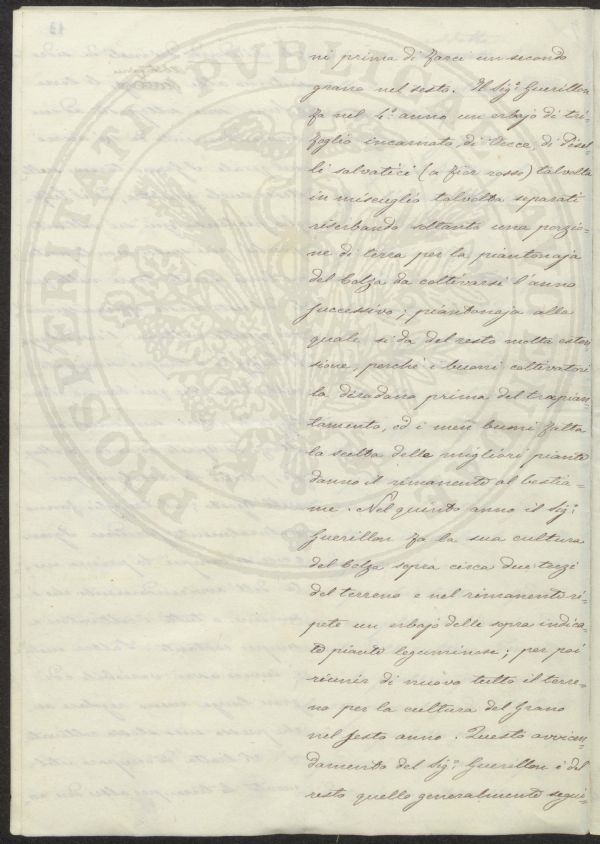 ni prima di farci un secondo
grano nel sesto. Il Sig.r Guerillon
fa nel 4.o anno un erbajo di tri-
foglio incarnato, di Vecce, di Pisel-
li salvatici (a fior rosso) talvolta
in miscuglio talvolta separati
riserbando soltanto una porzio-
ne di terra per la piantonaja
del Colza da coltivarsi l'anno
successivo; piantonaja alla
quale si dà del resto molta esten-
sione, perchè i buoni coltivatori
la diradano prima del trapian-
tamento, ed i men buoni fatta
la scelta delle migliori piante
danno il rimanente al bestia-
me. Nel quinto anno il Sig.r
Guerillon fa la sua cultura
del Colza sopra circa due terzi
del terreno e nel rimanente ri-
pete un erbajo delle sopra indica-
te piante leguminose; per poi
riunir di nuovo tutto il terre-
no per la cultura del Grano
nel sesto anno. Questo avvicen-
damento del Sig.r Guerillon è del
resto quello generalmente segui-
PROSPERITATI PVBLICAE